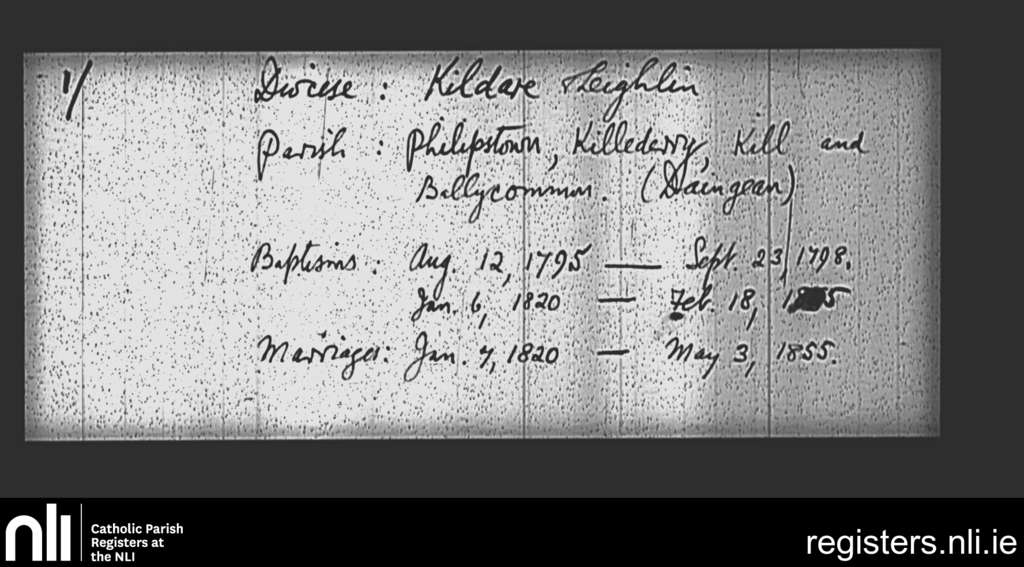 1/
Diocese : Kildare & Leighlin
Parish : Philipstown, Killederry, Kill and
Ballycommon. (Daingean)
Baptisms : Aug. 12, 1795 — Sept. 23, 1798.
Jan. 6, 1820 — Feb. 18,
Marriages : Jan. 7, 1820 — May 3, 1855.
nli
Catholic Parish
Registers at
the NLI
registers.nli.ie